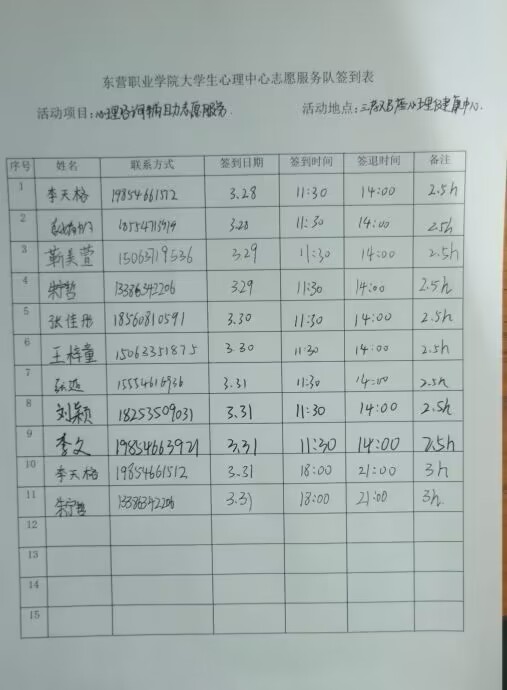 东营职业学院大学生心理中心志愿服务队签到表
活动项目:心理咨询辅助志愿服务. 活动地点:三号公寓楼心理健康中心.
序号 姓名 联系方式 签到日期 签到时间 签退时间 备注
1 李天格 19854661512 3.28 11:30 14:00 2.5h
2 3.28 11:30 14:00 2.5h
3 靳美萱 15063719536 3.29 11:30 14:00 2.5h
4 13386342206 3.29 11:30 14:00 2.5h
5 张佳彤 18560810591 3.30 11:30 14:00 2.5h
6 王梓童 15063351875 3.30 11:30 14:00 2.5h
7 15554616936 3.31 11:30 14:00 2.5h
8 刘颖 18253509031 3.31 11:30 14:00 2.5h
9 李文 19854663921 3.31 11:30 14:00 2.5h
10 李天格 19854661512 3.31 18:00 21:00 3h
11 13386342206 3.31 18:00 21:00 3h
12
13
14
15